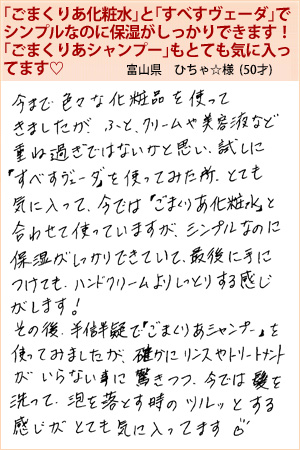 「ごまくりあ化粧水」と「すべすヴェーダ」で
シンプルなのに保湿がしっかりできます！
「ごまくりあシャンプー」もとても気に入っ
てます♡
富山県　ひちゃ☆様 (50才)
今まで色々な化粧品を使って
きましたが、ふと、クリームや美容液など
重ね過ぎではないかと思い、試しに
『すべすヴェーダ』を使ってみた所、とても
気に入って、今では『ごまくりあ化粧水』と
合わせて使っていますが、シンプルなのに
保湿がしっかりできていて、最後に手に
つけても、ハンドクリームよりしっとりする感じ
がします！
その後、半信半疑で『ごまくりあシャンプー』を
使ってみましたが、確かにリンスやトリートメント
がいらない事に驚きつつ、今では髪を
洗って、泡を落とす時のツルッとする
感じがとても気に入ってます